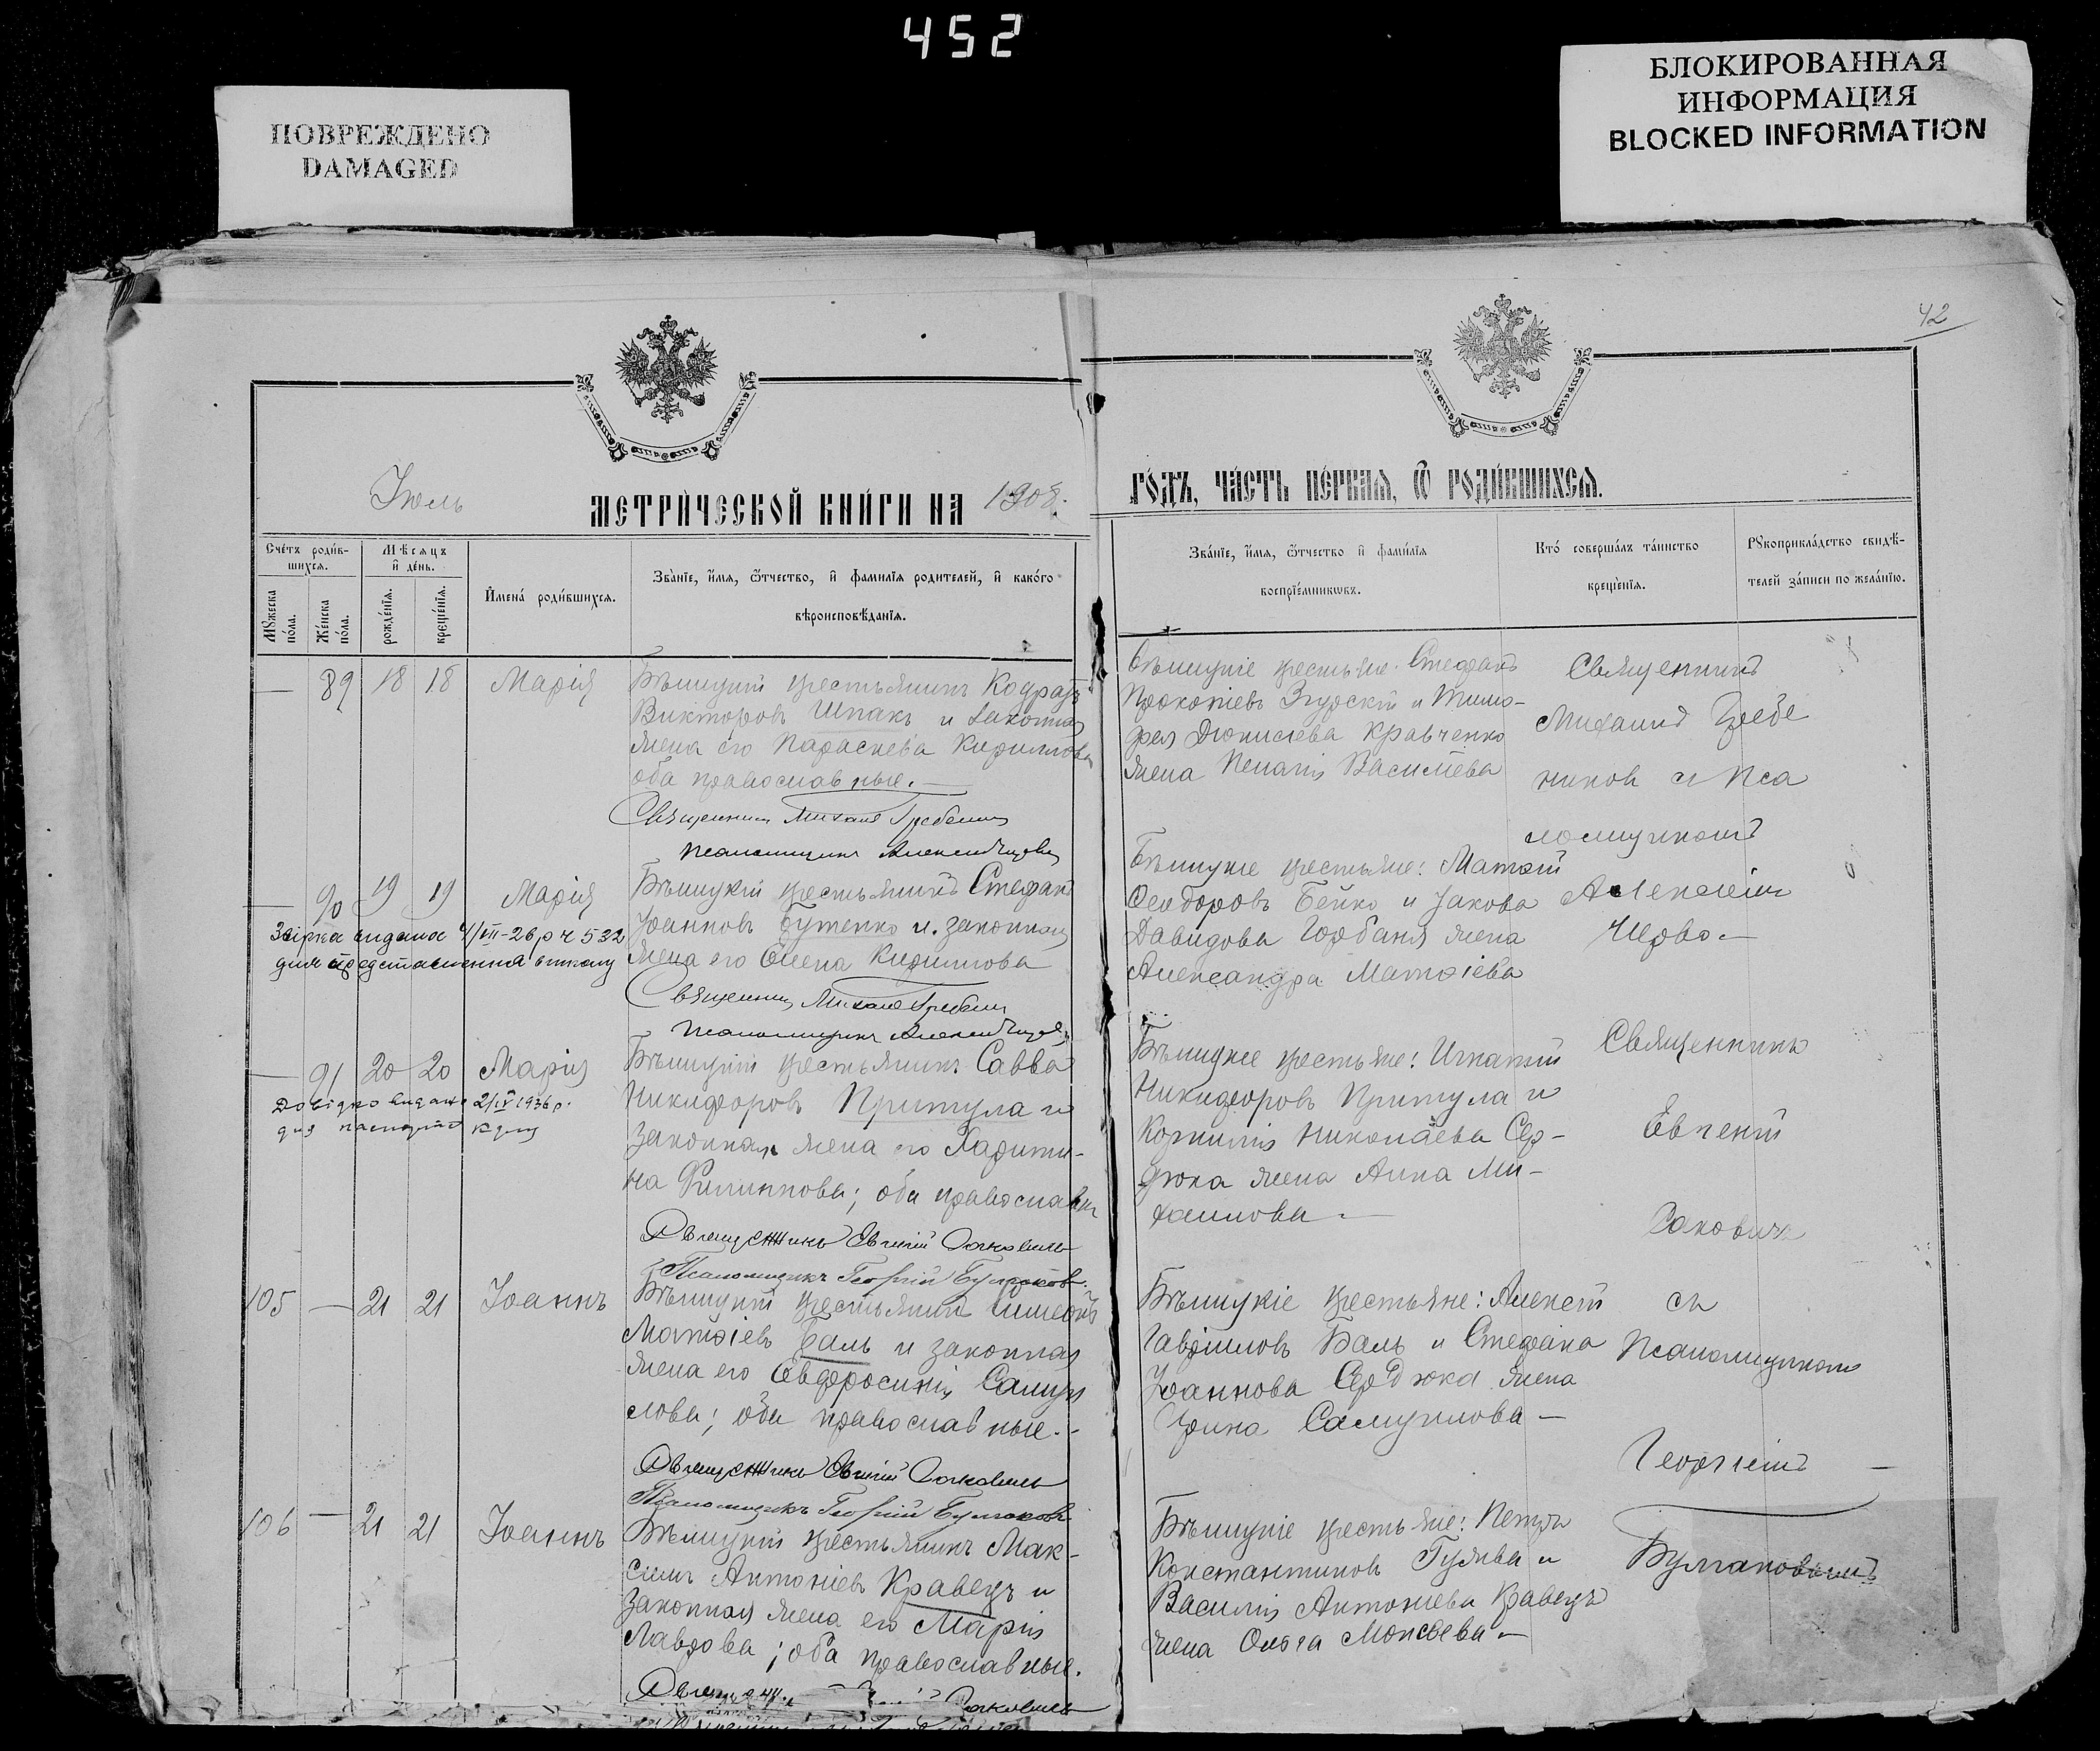 452
ПОВРЕЖДЕНО
DAMAGED
БЛОКИРОВАННАЯ
ИНФОРМАЦИЯ
BLOCKED INFORMATION
42
Іюль
МЕТРИЧЕСКОЙ КНИГИ НА 1908.
ГОДЪ, ЧАСТЬ ПЕРВАЯ, Ѡ РОДИВШИХСЯ.
Счетъ родив-
шихся.
Мѣсяцъ
и день.
Мужеска
пола.
Женска
пола.
рожденія.
крещенія.
Имена родившихся.
Званіе, имя, отчество, и фамилія родителей, и какого
вѣроисповѣданія.
Званіе, имя, отчество и фамилія
воспріемниковъ.
Кто совершалъ таинство
крещенія.
Рукоприкладство свидѣ-
телей записи по желанію.
— 89 18 18 Марія
крестьянинъ
Викторовъ Шпакъ и законная
жена его Параскева Кириллова
оба православные. —
Священникъ Михаилъ Гребен
Псаломщикъ Алексей
крестьяне: Стефанъ
Прокопіевъ Згурскій и Тимо-
фея Діонисіева Кравченко
жена Василіева
Священникъ
Михаилъ Гребе
никовъ и Пса
ломщикомъ
Алексеем
Черво —
— 90 19 19 Марія
крестьянинъ Стефанъ
Іоанновъ Бутенко и законная
жена его Елена Кириллова
Священникъ Михаилъ Гребен
Псаломщикъ Алексей
видана 4/VIII-26 р ч 532
для представлення в школу
крестьяне: Матѳій
Ѳеодоровъ Бейко и Іакова
Давидова Горбаня жена
Александра Матѳіева
— 91 20 20 Марія
крестьянинъ Савва
Никифоровъ Притула и
законная жена его Харити-
на Филиппова; оба православн
Священникъ Евгеній Саковичъ
Псаломщикъ Георгій Булгаков
видано 2/IV 1936 р.
для паспорта
крестьяне: Игнатій
Никифоровъ Притула и
Корнилія Николаева Сер-
дюка жена Анна Ми-
хаилова —
Священникъ
Евгеній
Саковичъ
105 — 21 21 Іоаннъ
крестьянинъ Симеонъ
Матѳіевъ Баль и законная
жена его Евфросинія Самуи
лова; оба православные. -
Священникъ Евгеній Саковичъ
Псаломщикъ Георгій Булгаков
крестьяне: Алексей
Гавріиловъ Баль и Стефана
Іоаннова Сердюка жена
Ирина Самуилова —
съ
Псаломщикомъ
Георгіемъ —
106 — 21 21 Іоаннъ
крестьянинъ Мак-
симъ Антоніевъ Кравецъ и
законная жена его Марія
Лаврова; оба православные.
Саковичъ
крестьяне: Петръ
Константиновъ Гулява и
Василія Антоніева Кравецъ
жена Ольга Моисеева —
Булгаковымъ